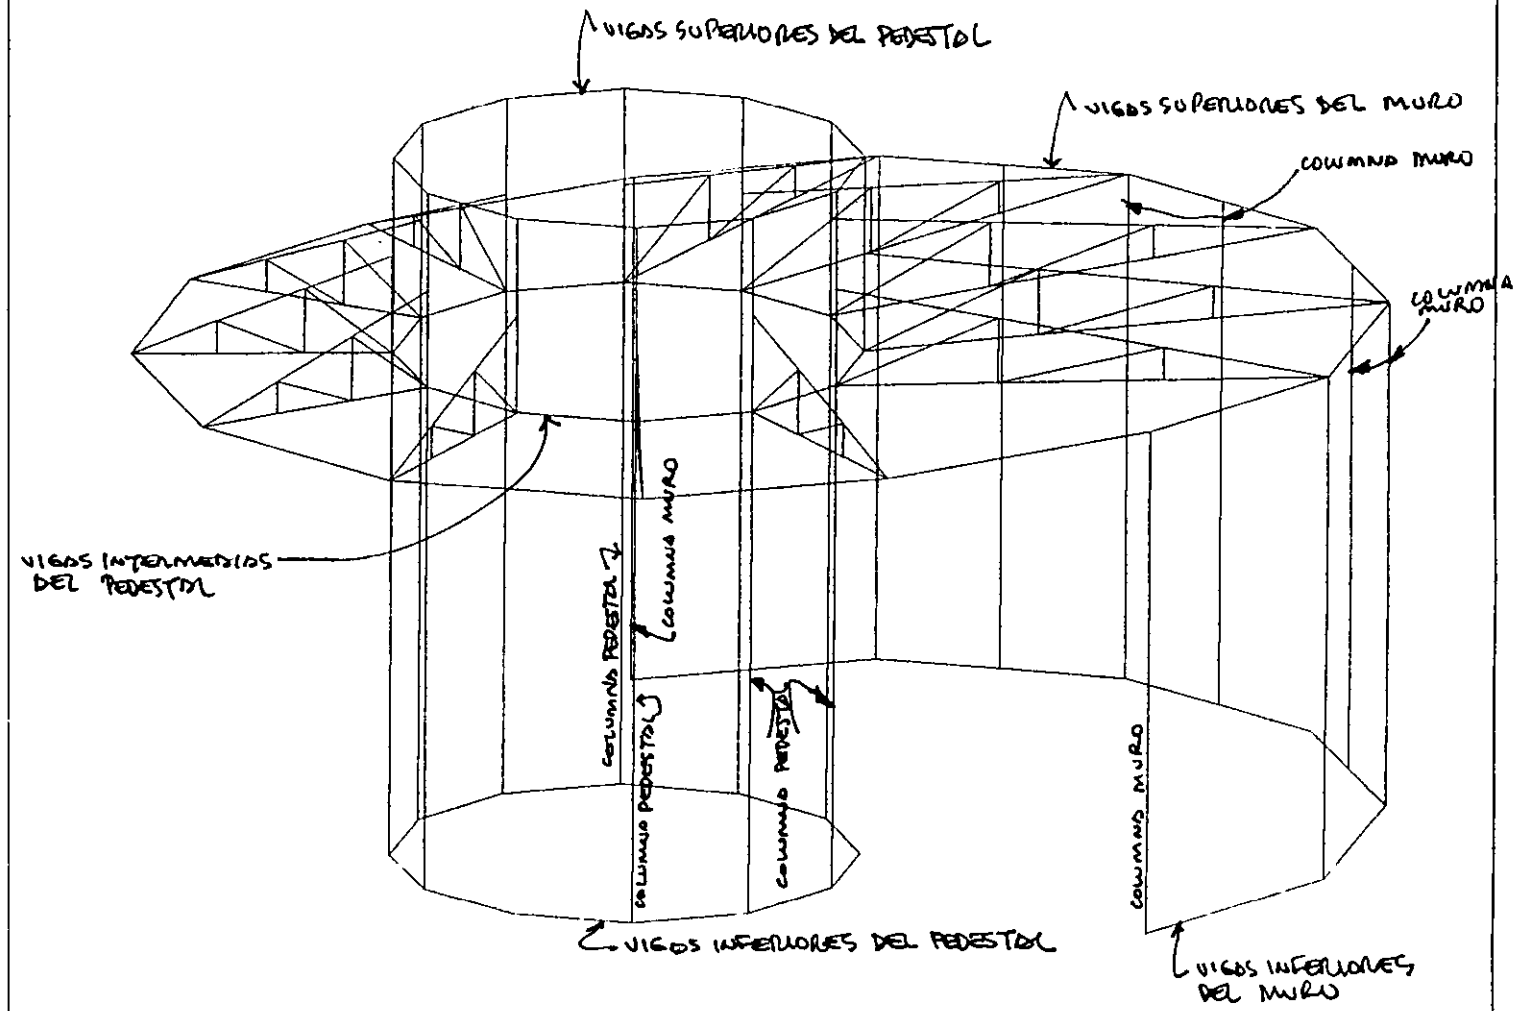 VIGAS SUPERIORES DEL PEDESTAL
VIGAS SUPERIORES DEL MURO
COLUMNA MURO
COLUMNA
MURO
VIGAS INTERMEDIAS
DEL PEDESTAL
COLUMNA PEDESTAL
COLUMNA MURO
COLUMNA PEDESTAL
COLUMNA PEDESTAL
COLUMNA MURO
VIGAS INFERIORES DEL PEDESTAL
VIGAS INFERIORES
DEL MURO